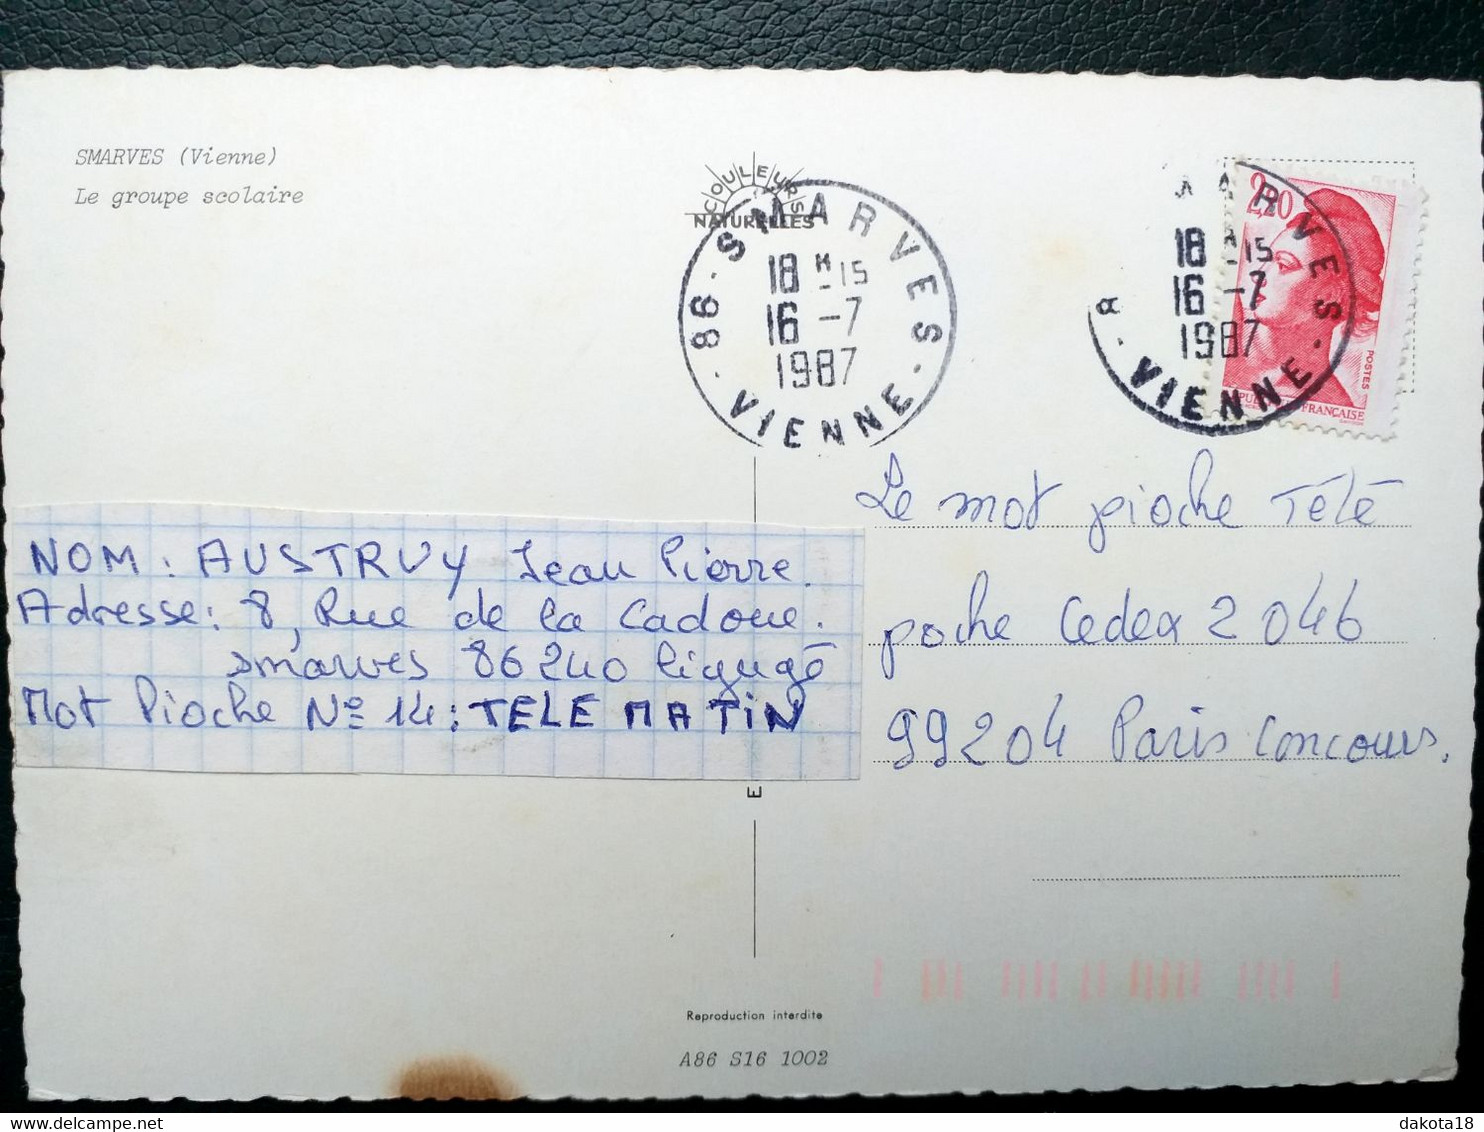 SMARVES (Vienne)
Le groupe scolaire
COULEURS
NATURELLES
86 - SMARVES
18 H -15
16 -7
1987
- VIENNE -
18 -15
16 -7
1987
VIENNE -
2,20
POSTES
FRANÇAISE
Le mot pioche Télé
poche Cedex 2046
99204 Paris Concours.
NOM : AUSTRUY Jean Pierre.
Adresse : 8, Rue de la Cadoue.
Smarves 86240 Ligugé
Mot Pioche N° 14 : TELE MATiN
E
Reproduction interdite
A86 S16 1002
dakota18